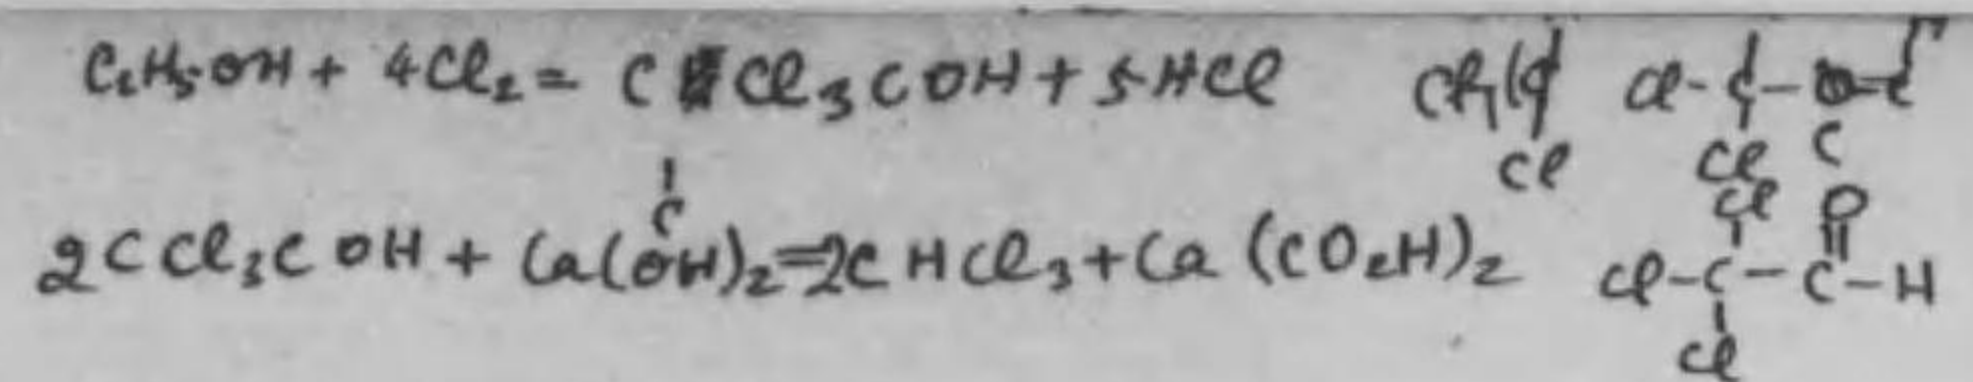 C₂H₅OH + 4Cl₂ = CCl₃COH + 5HCl
2CCl₃COH + Ca(OH)₂ = 2CHCl₃ + Ca(CO₂H)₂
Cl O
Cl-C-C-H
Cl